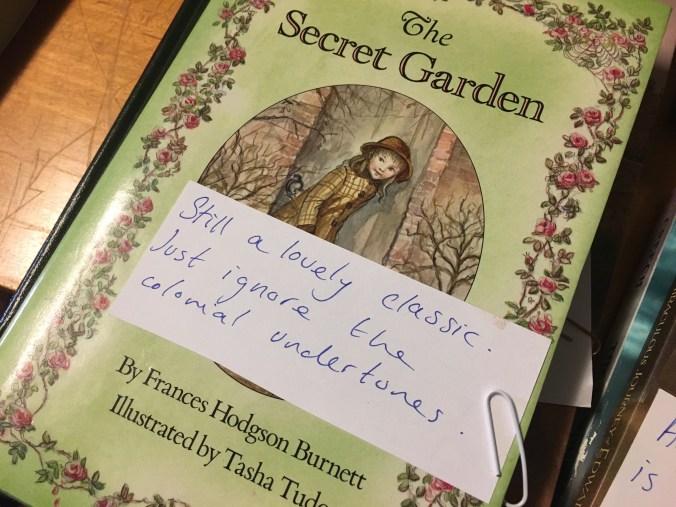 The
Secret Garden
Still a lovely classic.
Just ignore the
colonial undertones.
By Frances Hodgson Burnett
Illustrated by Tasha Tudo
MIRACULOUS JOURNEY of EDWAR
is